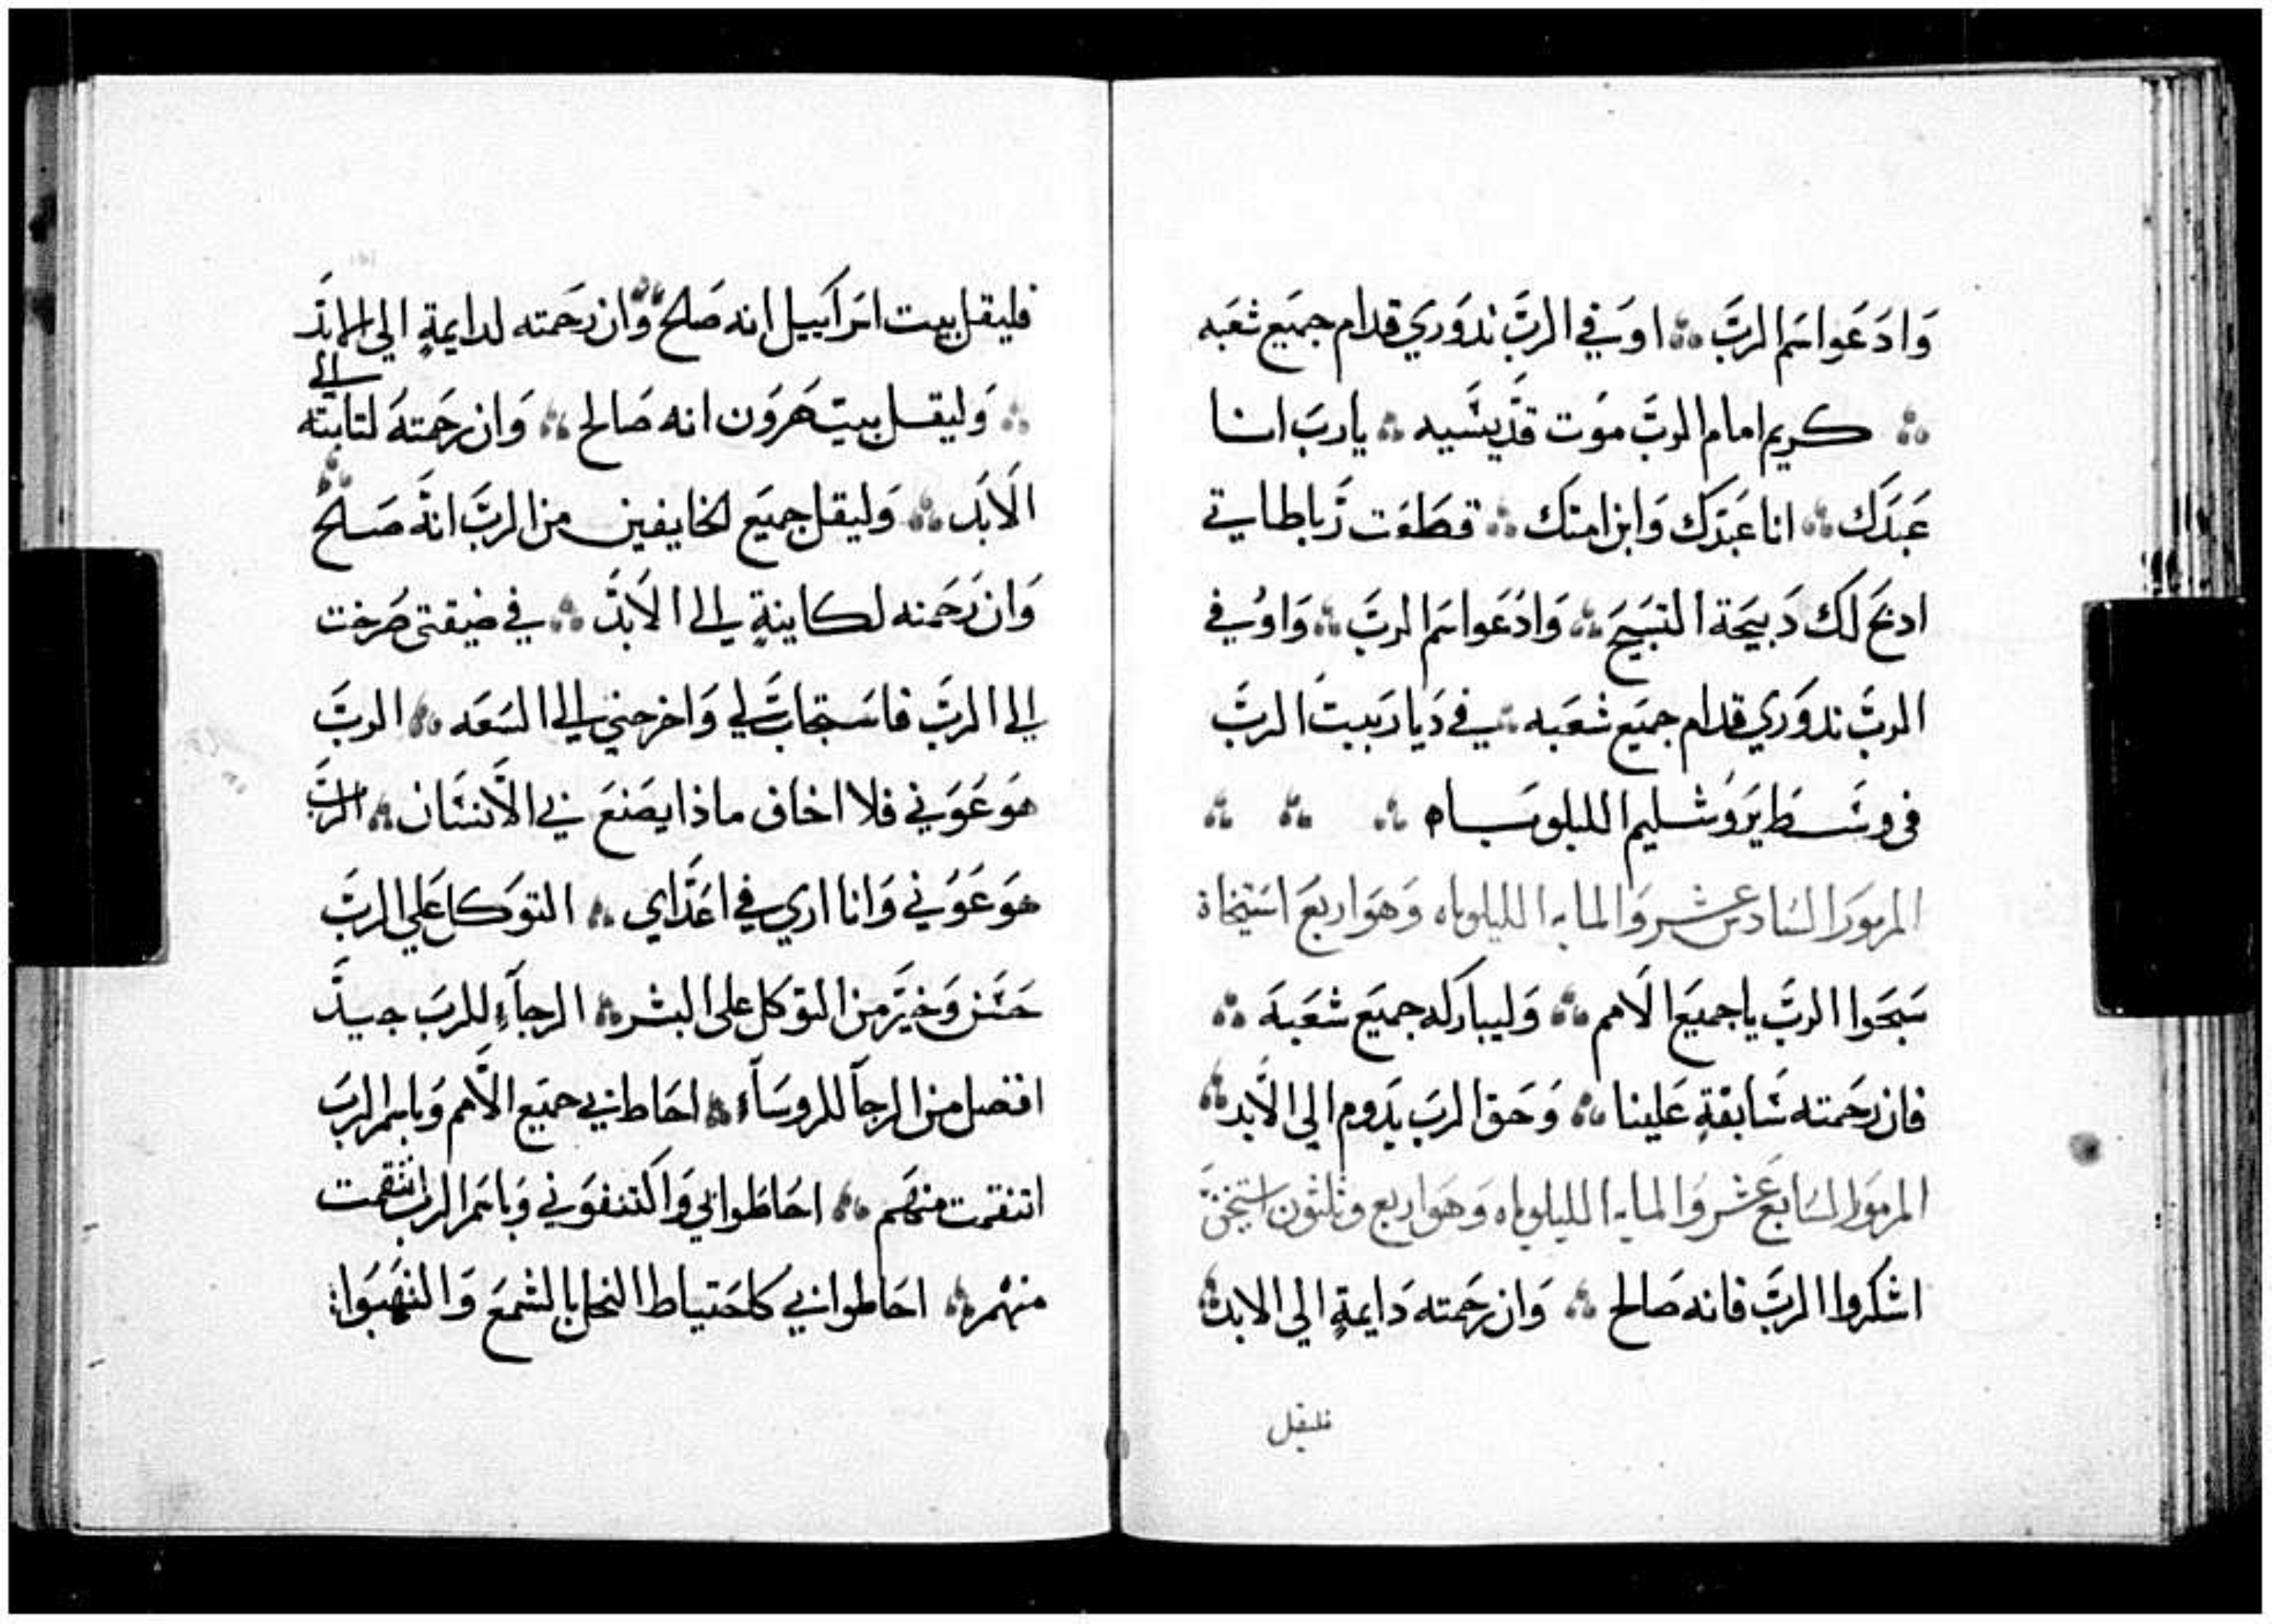 وَادَعَوا اسَم الربَّ ∴ اوَفي الربَّ ندوَري قدام جميَع شعَبه
∴ كريم امام الربَّ موَت قدَّيسَّيه ∴ يارب انا
عَبَدَك ∴ انا عَبَدَك وَابن امتك ∴ قطَعَت رَباطاتي
ادبَح لَك دَبيَحَة التسَبيَحَ ∴ وَادَعَوا اسَم الربَّ ∴ وَاوُفي
الربَّ ندوَري قدام جميَع شعَبه ∴ في دَيارَ بيتَ الربَّ
فى وسَّط يَروُشليم الليلويَاه ∴ ∴ ∴
المزموَر السَادس عَشر وَالمايه الليلوياه وَهوَ اربعَ استيخاة
سَبَحَوا الربَّ ياجميَع الاَمم ∴ وَليبارَكه جميَع شعَبَه ∴
فان رَحَمته سَابقةٍ عَلينا ∴ وَحَق الربَ يَدوم الي الاَبد ∴
المزموَر السَابع عَشر وَالمايه الليلوياه وَهوَ اربع وثلثون استيخن
اشكروا الربَّ فانه صَالح ∴ وَان رَحَمته دَايمةٍ الي الابد ∴
فليقل
فليقل بيت اسَرآييل انه صَلح ∴ وَان رَحَمته لدايمةٍ الي الابَد
∴ وَليقل بيتَ هَرَوَن انه صَالح ∴ وَان رَحَمتهَ لثابته الي
الاَبَد ∴ وَليقل جميَع الخايفين من الربَّ انهَ صَلحُ ∴
وَان رَحَمته لكاينةٍ الي الاَبدَّ ∴ في ضيقتي صَرخت
الي الربَّ فاسَتجابَ لي وَاخرجني الي السَعَه ∴ الربَّ
هوَ عَوَني فلا اخاف ماذا يصَنعَ بي الاَنسَان ∴ الربَّ
هوَ عَوَني وَانا اري في اعَدَّاي ∴ التوَكل عَلي الربَّ
حَسَن وَخيرَ من التوَكل على البشر ∴ الرجآءِ للربَ جيدَّ
افضل من الرجآ للروسَآء ∴ احَاط بي جميَع الاَمم وَباسم الربَ
انتقمت منهَم ∴ احَاطَوا بي وَاكتنفوَني وَباسَم الرب انتقمت
منهَمر ∴ احَاطوا بي كاحَتياط النحل بالشمعَ وَالتهَبَوا